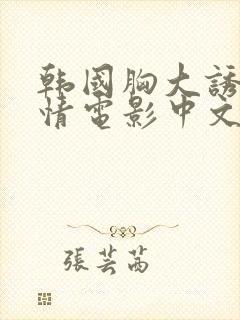 韩國胸大誘
情電影中文
張芸茜